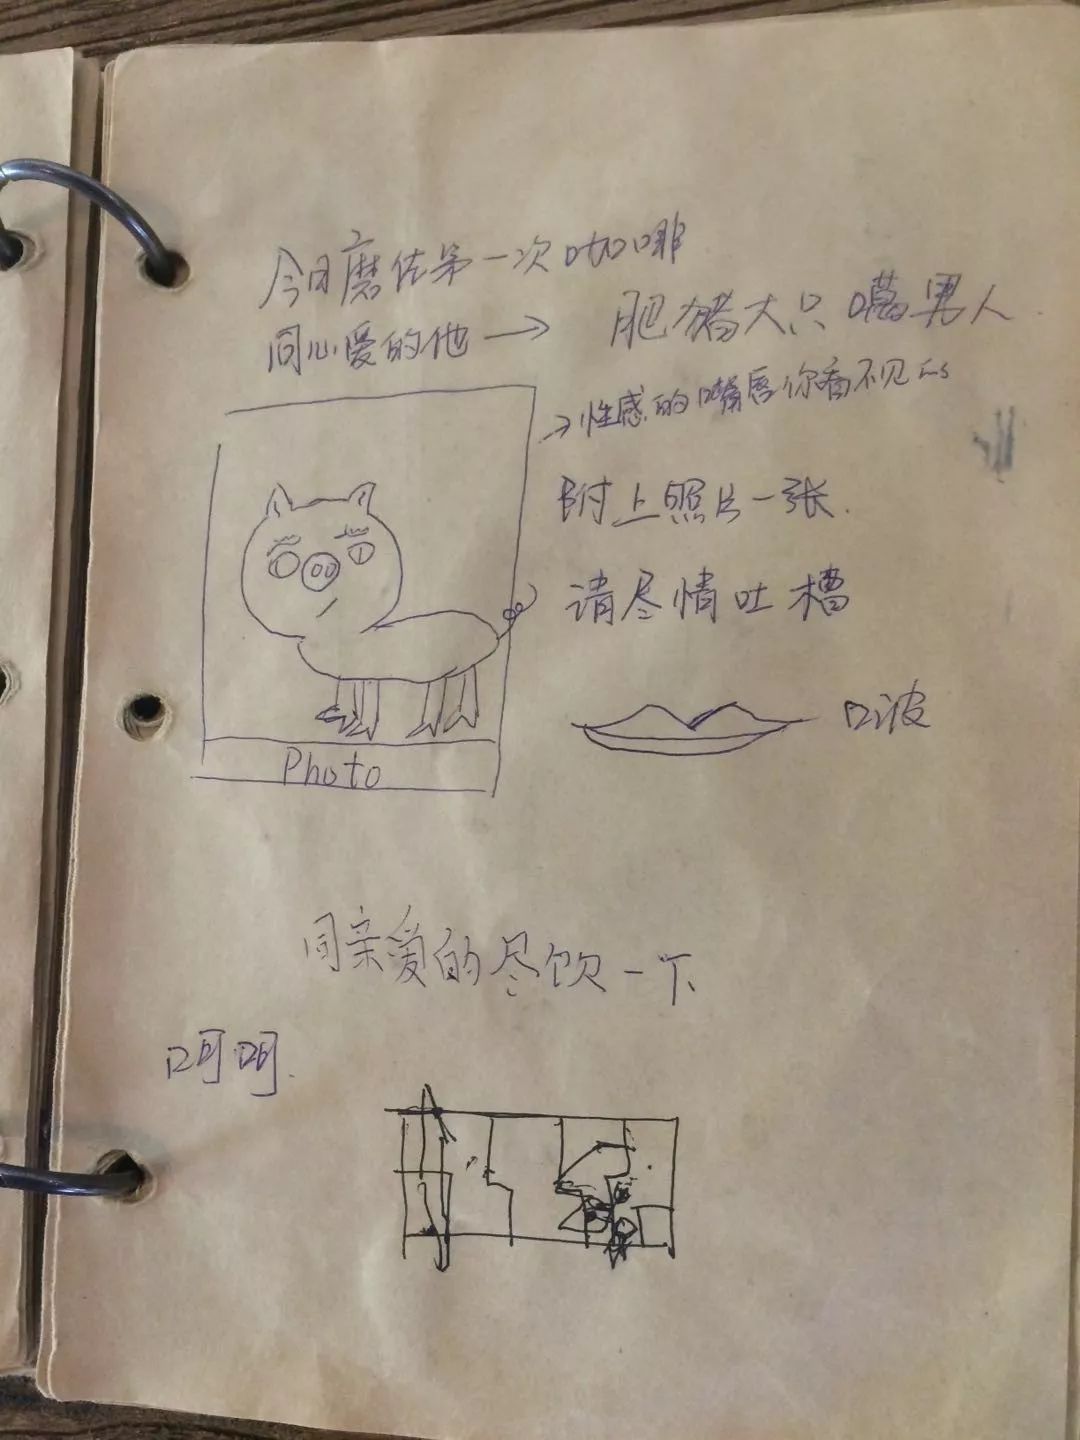 今日磨佐第一次咖啡
同心爱的他→ 肥猪大只嘅男人
→性感的嘴唇你看不见
附上照片一张.
请尽情吐槽
口波
Photo
同亲爱的尽饮一下
呵呵.